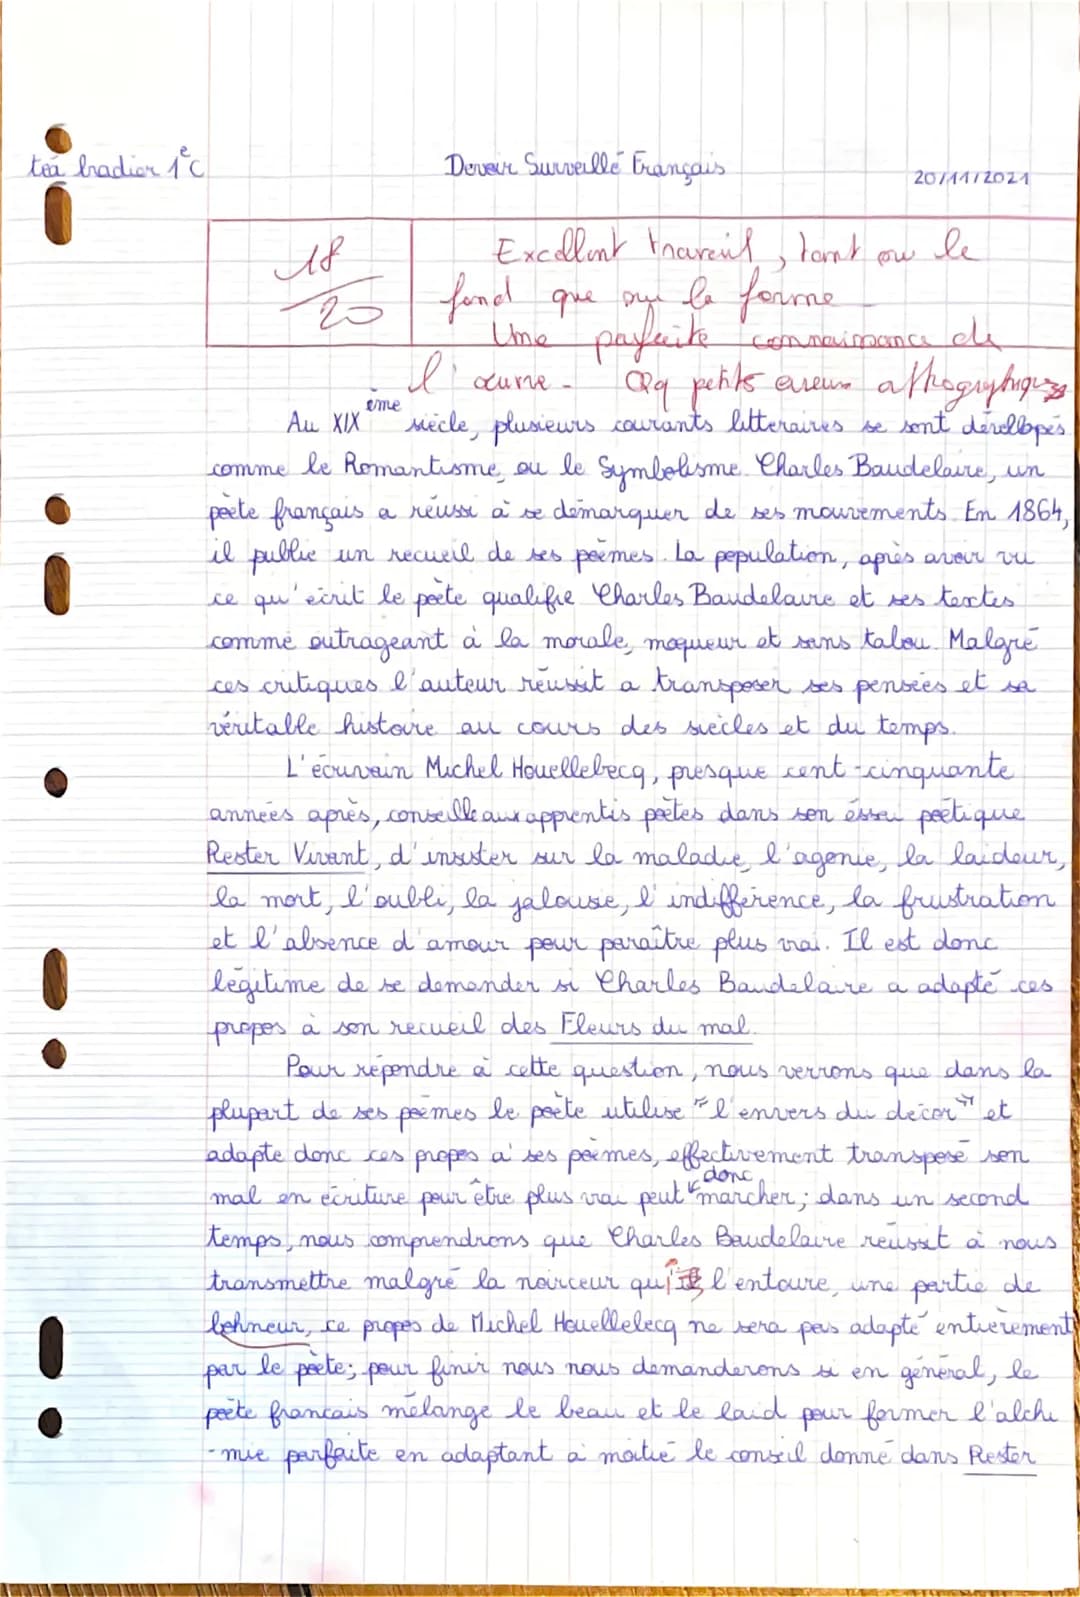 téa bradier 1eC
Devoir Surveillé Français
20/11/2021
18/20
Excellent travail, tant sur le
fond que sur la forme
Une parfaite connaissance de
l'œuvre - Qq petits erreurs orthographiques
Au XIXème siècle, plusieurs courants litteraires se sont dévellopés
comme le Romantisme, ou le Symbolisme. Charles Baudelaire, un
poète français a réussi à se démarquer de ses mouvements. En 1864,
il publie un recueil de ses poèmes. La population, après avoir vu
ce qu'écrit le poète qualifie Charles Baudelaire et ses textes
comme outrageant à la morale, moqueur et sans tabou. Malgré
ces critiques l'auteur réussit a transposer ses pensées et sa
véritable histoire au cours des siècles et du temps.
L'écrivain Michel Houellebecq, presque cent-cinquante
années après, conseille aux apprentis poètes dans son éssai poètique
Rester Vivant, d'insister sur la maladie, l'agonie, la laideur,
la mort, l'oubli, la jalousie, l'indifférence, la frustration
et l'absence d'amour pour paraître plus vrai. Il est donc
légitime de se demander si Charles Baudelaire a adapté ces
propos à son recueil des Fleurs du mal.
Pour répondre à cette question, nous verrons que dans la
plupart de ses poèmes le poète utilise "l'envers du décor" et
adapte donc ces propos a' ses poèmes, effectivement transposé son
mal en écriture pour être plus vrai peut donc marcher; dans un second
temps, nous comprendrons que Charles Baudelaire réussit à nous
transmettre malgré la noirceur qui l'entoure, une partie de
bohneur, ce propos de Michel Houellebecq ne sera pas adapté entièrement
par le poète; pour finir nous nous demanderons si en général, le
poète francais mélange le beau et le laid pour former l'alchi
-mie parfaite en adaptant à moitié le conseil donné dans Rester